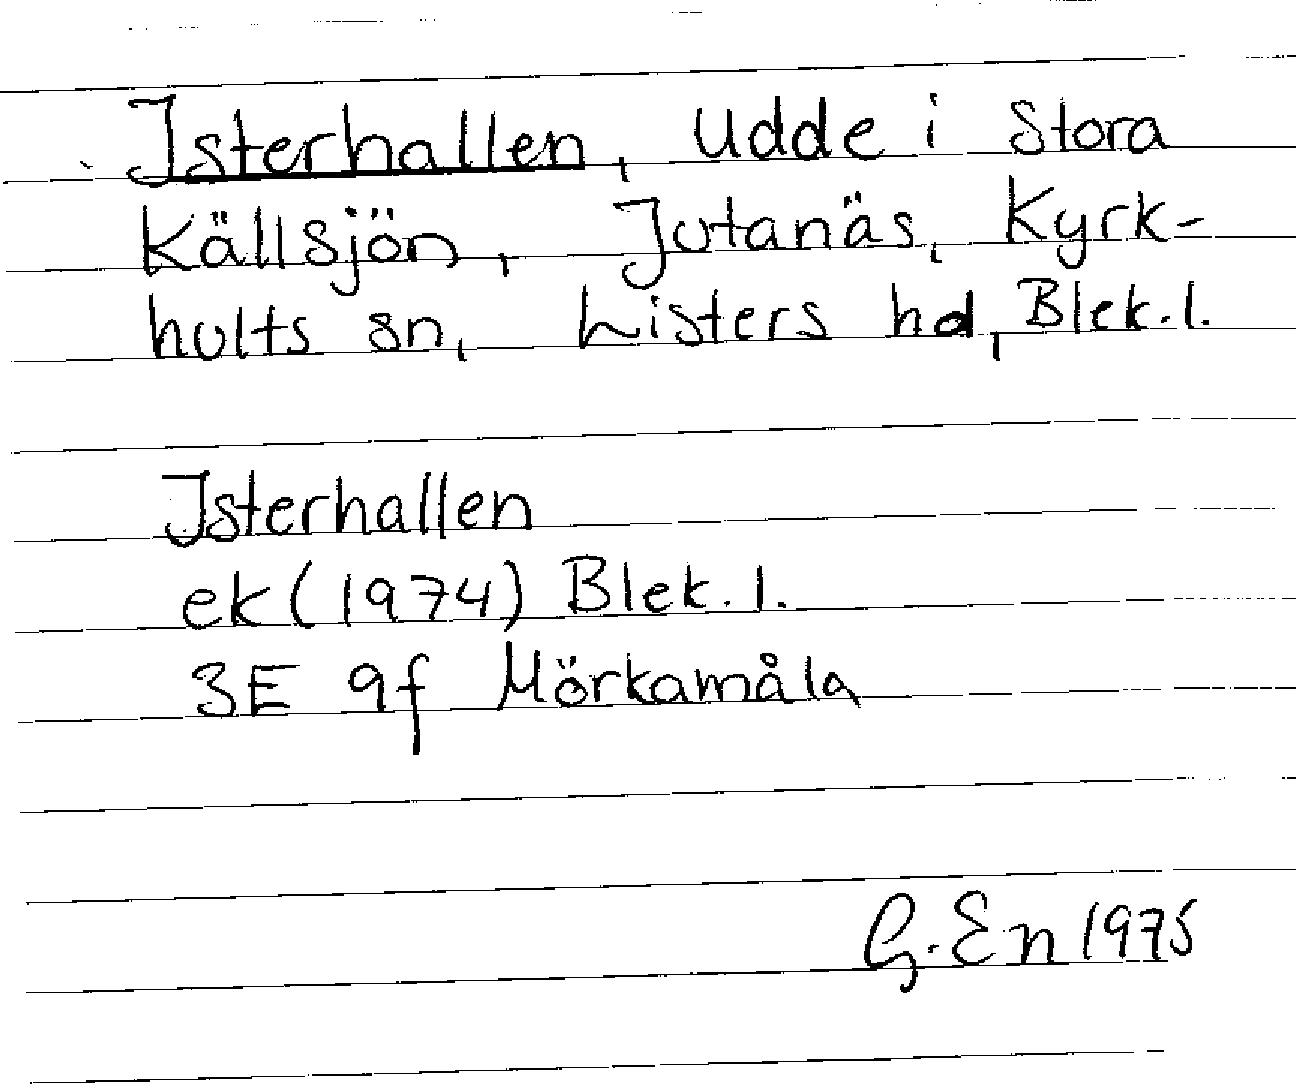 Isterhallen, udde i Stora
Källsjön, Jutanäs, Kyrk-
hults sn, Listers hd, Blek. l.
Isterhallen
ek (1974) Blek. l.
3E 9f Mörkamåla
G. En 1975